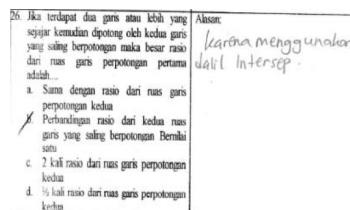 26. Jika terdapat dua garis atau lebih yang
sejajar kemudian dipotong oleh kedua garis
yang saling berpotongan maka besar rasio
dari ruas garis perpotongan pertama
adalah...
a. Sama dengan rasio dari ruas garis
perpotongan kedua
b. Perbandingan rasio dari kedua ruas
garis yang saling berpotongan Bernilai
satu
c. 2 kali rasio dari ruas garis perpotongan
kedua
d. ½ kali rasio dari ruas garis perpotongan
kedua
Alasan:
karena menggunakan
dalil Intersep.